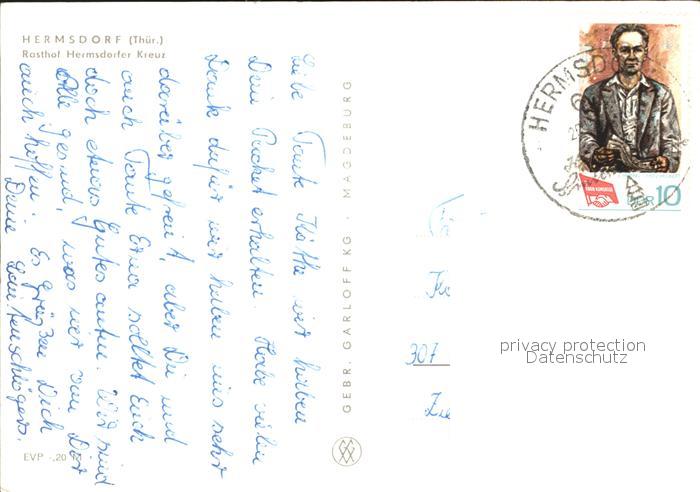 HERMSDORF (Thür.)
Rasthof Hermsdorfer Kreuz
Liebe Tante Käthe wir haben
Dein Packet erhalten. Habe vielen
Dank dafür wir haben uns sehr
darüber gefreut, aber Du und
auch Tante Erna solltet Euch
doch etwas Gutes antun. Wir sind
Alle gesund, was wir von Dir
auch hoffen. Es grüßen Dich
Deine
EVP -,20 M
GEBR. GARLOFF KG · MAGDEBURG
307
HERMSDO
DDR 10
privacy protection
Datenschutz